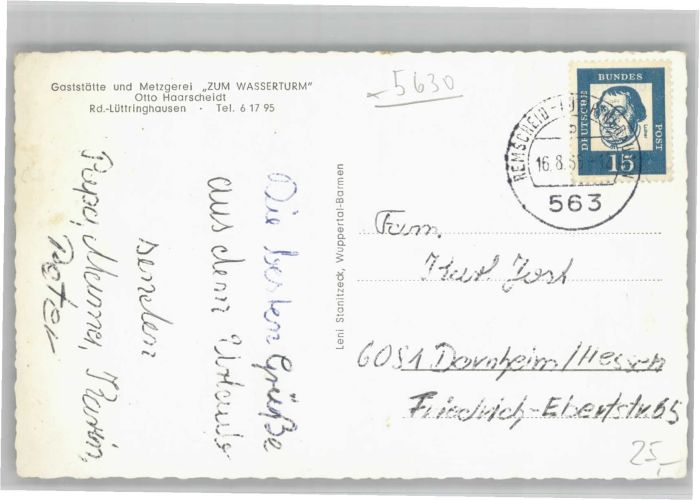 Gaststätte und Metzgerei „ZUM WASSERTURM"
Otto Haarscheidt
Rd.-Lüttringhausen · Tel. 6 17 95
5630
DEUTSCHE BUNDES POST
15
REMSCHEID-
16.8.
563
Die besten Grüße
aus dem Urlaub
senden
Papa, Mama, Karin,
Peter
Leni Stanitzeck, Wuppertal-Barmen
Fam.
Karl Jost
6051 Dornheim/Hessen
Friedrich-Ebertstr 65
25,-